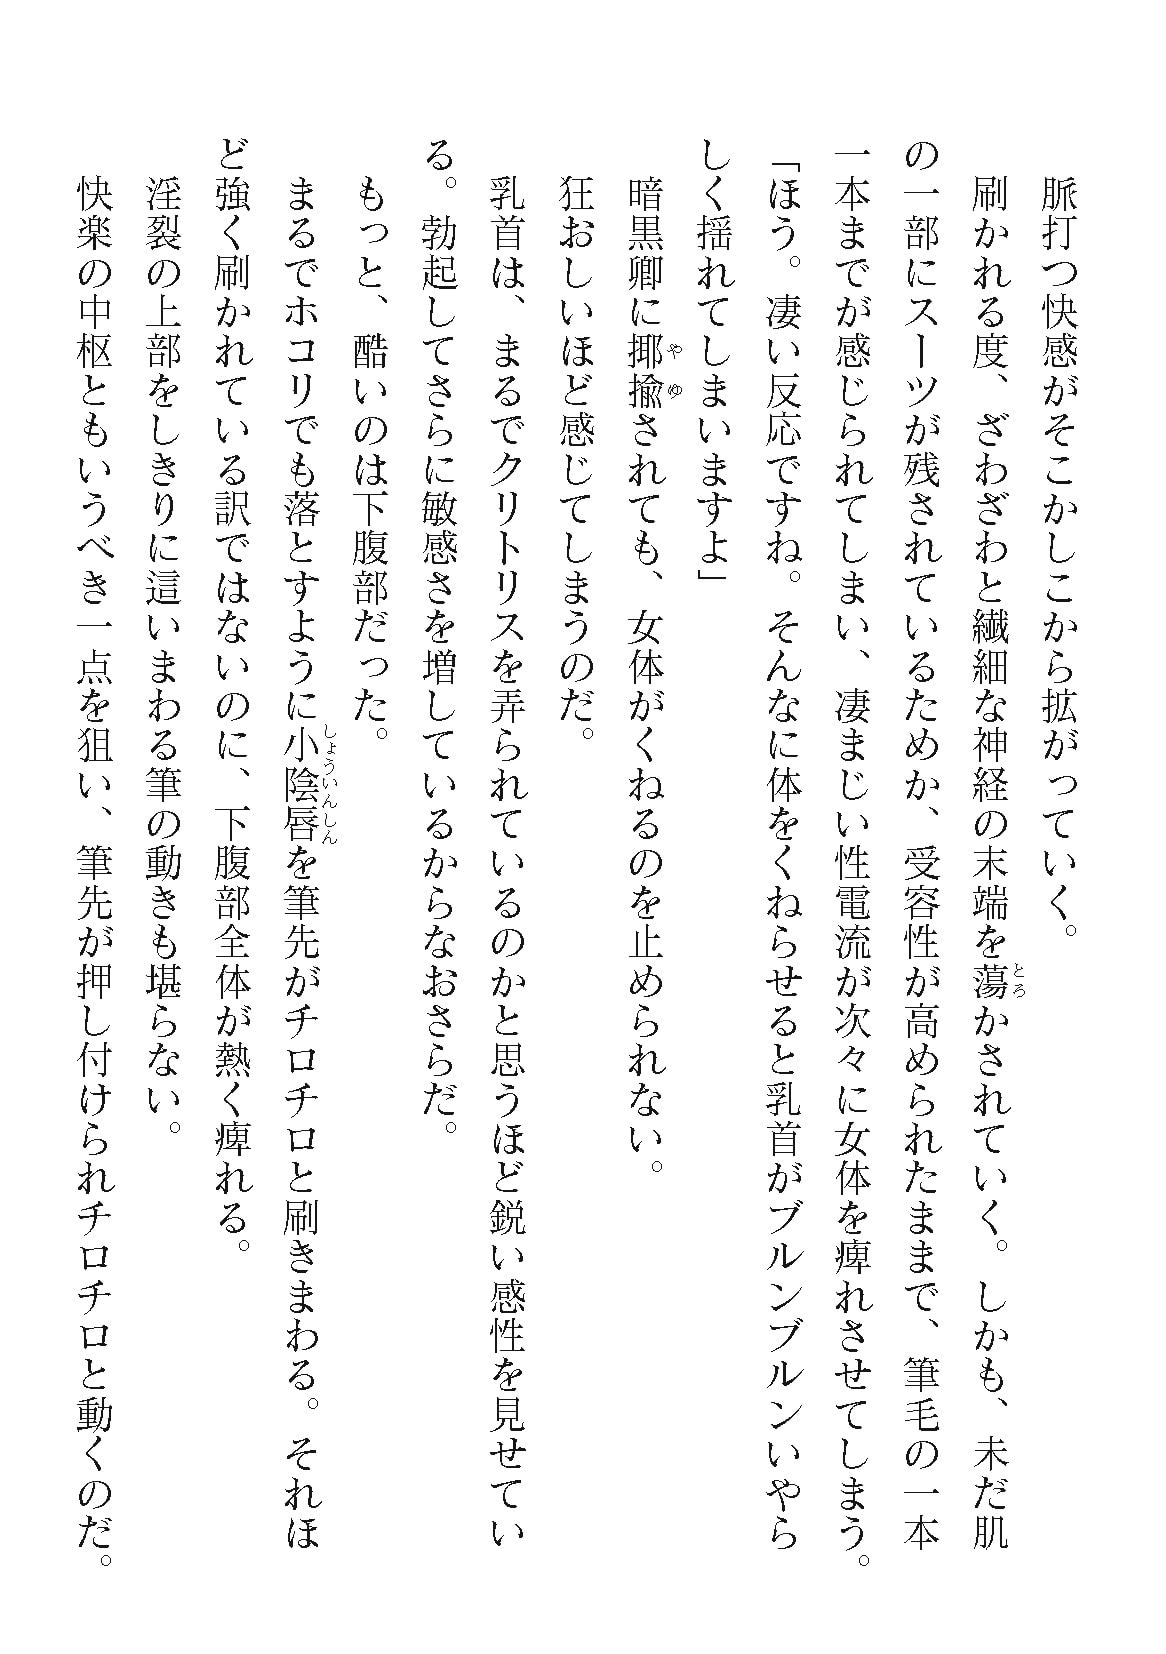 脈打つ快感がそこかしこから拡がっていく。
刷かれる度、ざわざわと繊細な神経の末端を蕩かされていく。しかも、未だ肌
の一部にスーツが残されているためか、受容性が高められたままで、筆毛の一本
一本までが感じられてしまい、凄まじい性電流が次々に女体を痺れさせてしまう。
「ほう。凄い反応ですね。そんなに体をくねらせると乳首がブルンブルンいやら
しく揺れてしまいますよ」
暗黒卿に揶揄されても、女体がくねるのを止められない。
狂おしいほど感じてしまうのだ。
乳首は、まるでクリトリスを弄られているのかと思うほど鋭い感性を見せてい
る。勃起してさらに敏感さを増しているからなおさらだ。
もっと、酷いのは下腹部だった。
まるでホコリでも落とすように小陰唇を筆先がチロチロと刷きまわる。それほ
ど強く刷かれている訳ではないのに、下腹部全体が熱く痺れる。
淫裂の上部をしきりに這いまわる筆の動きも堪らない。
快楽の中枢ともいうべき一点を狙い、筆先が押し付けられチロチロと動くのだ。
とろ
やゆ
しょういんしん